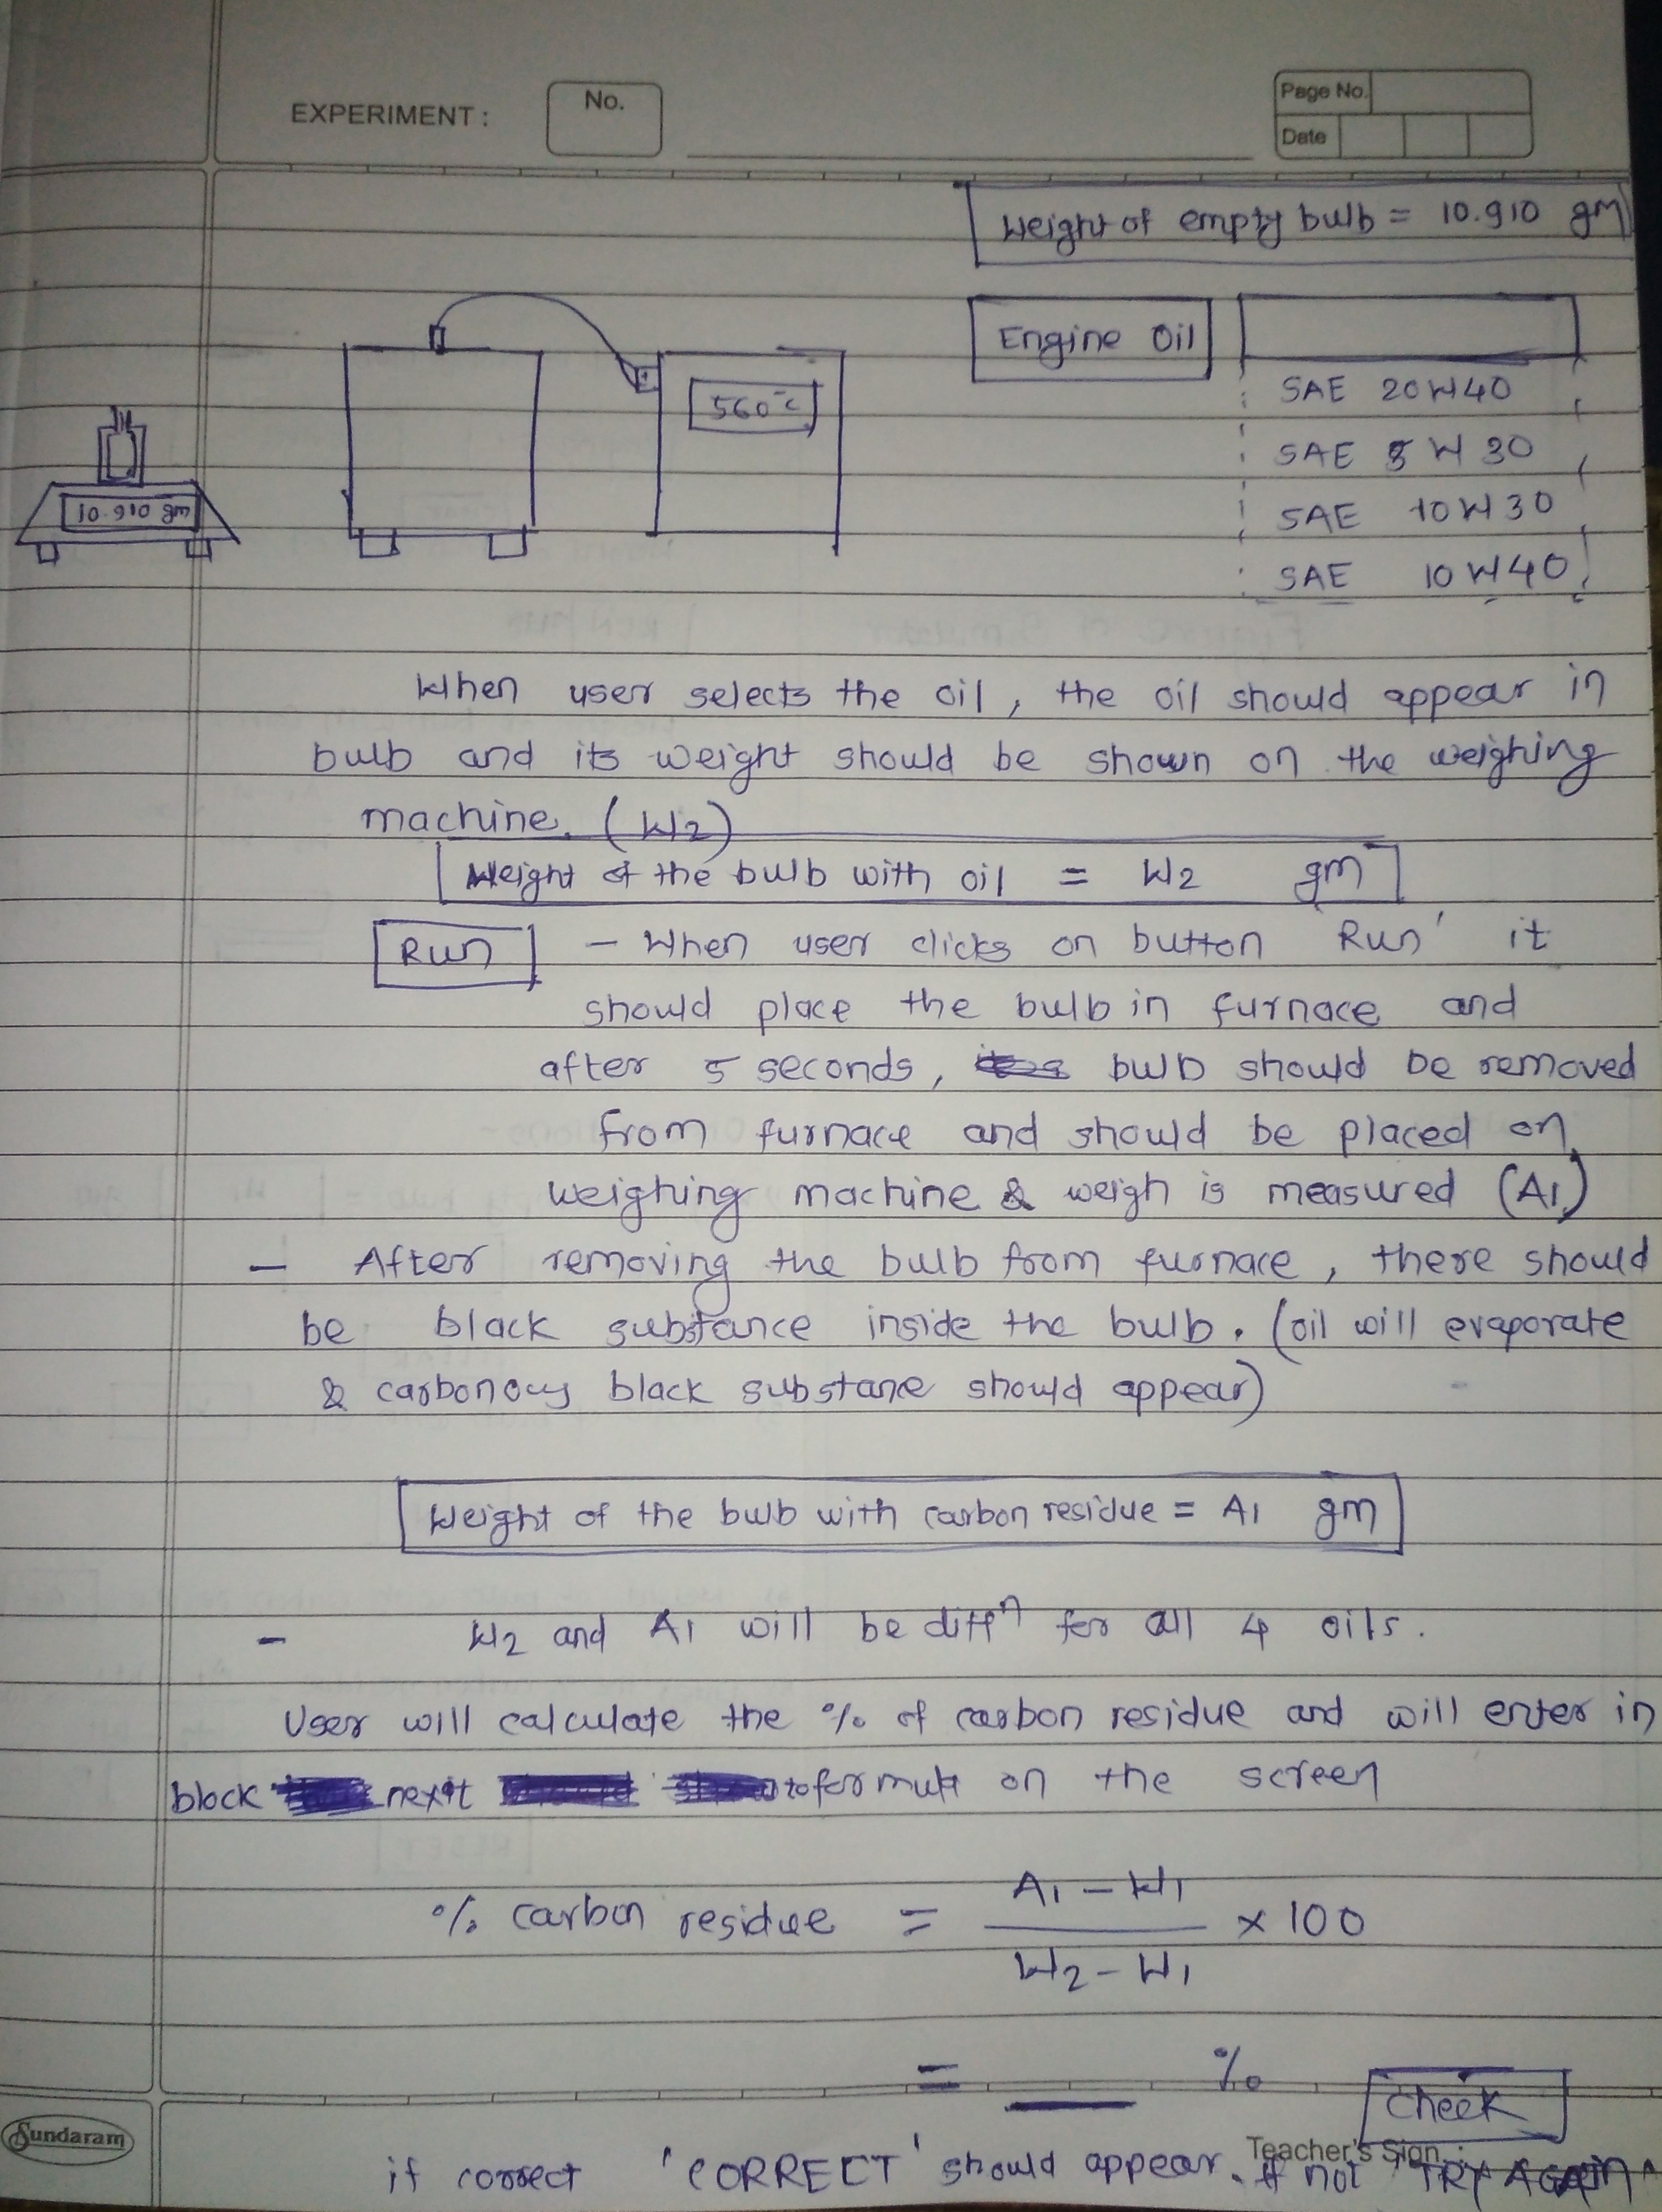 EXPERIMENT :
No.
Page No.
Date
Weight of empty bulb = 10.910 gm
Engine Oil
560°C
SAE 20W40
SAE 5 W 30
10.910 gm
SAE 10W30
SAE 10W40
When user selects the oil, the oil should appear in
bulb and its weight should be shown on the weighing
machine. (W2)
Weight of the bulb with oil = W2 gm
Run - When user clicks on button 'Run' it
should place the bulb in furnace and
after 5 seconds, bulb should be removed
from furnace and should be placed on
weighing machine & weigh is measured (A1)
- After removing the bulb from furnace, there should
be black substance inside the bulb. (oil will evaporate
& carbonous black substane should appear)
Weight of the bulb with carbon residue = A1 gm
- W2 and A1 will be diffn for all 4 oils.
User will calculate the % of carbon residue and will enter in
block next to formula on the screen
% carbon residue = A1 - W1 / W2 - W1 × 100
= ___ %
Check
Sundaram
Teacher's Sign. :
if correct 'CORRECT' should appear. If not 'TRY AGAIN'